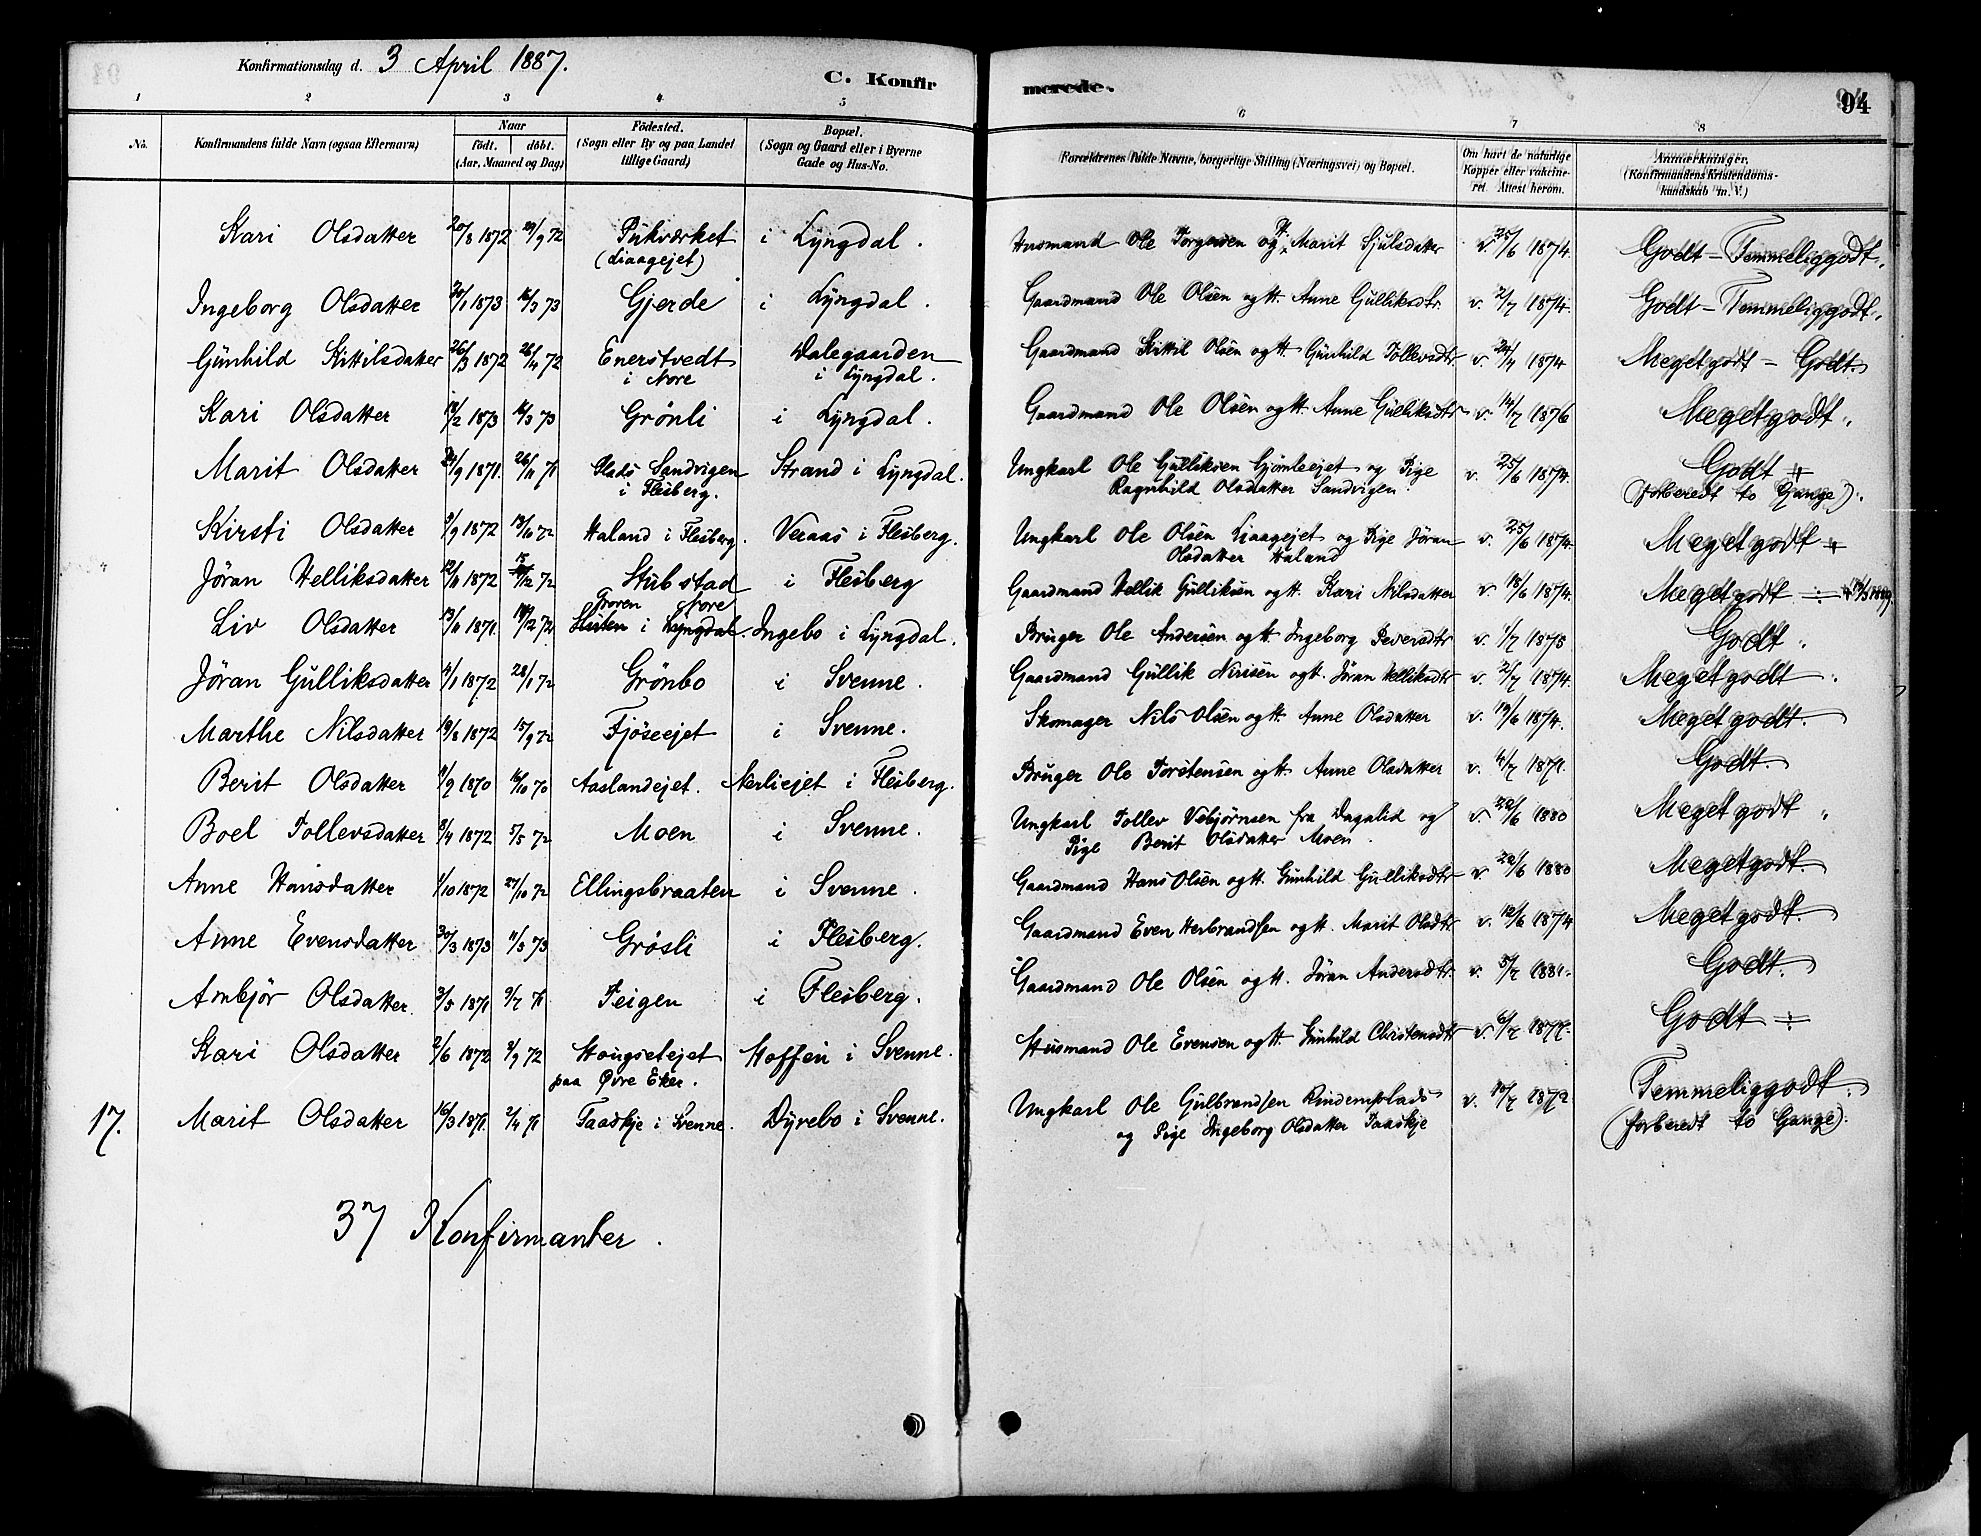 Konfirmationsdag d. 3 April 1887.
C. Konfirmerede.
94
1 2 3 4 5 6 7 8
No. Konfirmandens fulde Navn (ogsaa Efternavn) Naar født. døbt. (Aar, Maaned og Dag) Fødested. (Sogn eller By og paa Landet tillige Gaard) Bopæl. (Sogn og Gaard eller i Byerne Gade og Hus-No. Forældrenes fulde Navne, borgerlige Stilling (Næringsvei) og Bopæl. Om havt de naturlige Kopper eller vakcineret. Attest herom. Anmærkninger. (Konfirmandens Kristendomskundskab m. V.)
Kari Olsdatter 20/8 1872 29/9 72 Pukværket (Liaagejet) i Lyngdal. Husmand Ole Torgersen og P. Marit Sjulsdatter v 25/6 1874. Godt - Temmeliggodt.
Ingeborg Olsdatter 20/1 1873 16/3 73 Gjerde i Lyngdal. Gaardmand Ole Olsen og H. Anne Gulliksdtr. v. 2/7 1874. Godt - Temmeliggodt.
Gunhild Kittilsdatter 26/3 1872 26/4 72 Enerstvedt i Nore Dalegaarden i Lyngdal. Gaardmand Kittil Olsen og H. Gunhild Tollevsdtr v. 24/7 1874 Megetgodt - Godt.
Kari Olsdatter /2 1873 /3 73 Grönli i Lyngdal. Gaardmand Ole Olsen og H. Anne Gulliksdtr v. 14/7 1876 Megetgodt.
Marit Olsdatter 24/9 1871. 26/11 71 Plads Sandvigen i Flesberg. Strand i Lyngdal. Ungkarl Ole Gulliksen Gjömleejet og Pige Ragnhild Olsdatter Sandvigen. v. 25/6 1874. Godt (forberedt to Gange).
Kirsti Olsdatter 3/9 1872 13/10 72 Haland i Flesberg. Veraas i Flesberg. Ungkarl Ole Olsen Liaagejet og Pige Jöran Olsdatter Haland v. 25/6 1874. Megetgodt
Jöran Helliksdatter 12/11 1872 15/12 72 Stubstad i Flesberg Gaardmand Hellik Gulliksen og H. Kari Nilsdatter v 18/6 1874. Megetgodt
Liv Olsdatter 13/11 1871. /12 72 Groren Nore i Lyngdal. Ingebo i Lyngdal. Bruger Ole Andersen og H. Ingeborg Peversdtr v. 1/7 1875 Godt.
Jöran Gulliksdatter 4/1 1872 28/1 72 Grönbo i Svenne. Gaardmand Gullik Nirisen og H. Jöran Helliksdtr v. 2/7 1874. Megetgodt.
Marthe Nilsdatter 19/8 1872 15/9 72 Fjöseejet i Svenne. Skomager Nils Olsen og H. Anne Olsdatter v. 19/6 1874. Megetgodt.
Berit Olsdatter 11/9 1870 16/10 70 Aaslandejet. Nerliejet i Flesberg. Bruger Ole Torstensen og H. Anne Olsdatter v. 11/7 1871. Godt
Boel Tollevsdatter 8/4 1872 5/5 72 Moen i Svenne. Ungkarl Tollev Vebjörnsen fra Dagalid og Pige Berit Olsdatter Moen. v 22/6 1880 Megetgodt
Anne Hansdatter 1/10 1872 27/10 72 Ellingsbraaten i Svenne. Gaardmand Hans Olsen og H. Gunhild Gulliksdtr v 22/6 1880 Megetgodt.
Anne Evensdatter 30/3 1873 11/5 73 Grösli i Flesberg. Gaardmand Even Herbrandsen og H. Marit Olsdtr v. 12/6 1874 Megetgodt.
Ambjör Olsdatter. 3/5 1871 9/7 71 Teigen i Flesberg. Gaardmand Ole Olsen og H. Jöran Andersdtr v. 5/7 1881. Godt.
Kari Olsdatter 2/6 1872 /9 72 Hougsetejet paa Øvre Eker. Hoffen i Svenne. Husmand Ole Evensen og H. Gunhild Christensdtr v 6/7 1877. Godt
17. Marit Olsdatter 16/3 1871. 2/4 71 Taaskje i Svenne. Dyrebo i Svenne. Ungkarl Ole Gulbrandsen Rindemplads og Pige Ingeborg Olsdatter Taaskje v. 10/7 1872 Temmeliggodt. (forberedt to Gange).
37 Konfirmanter.